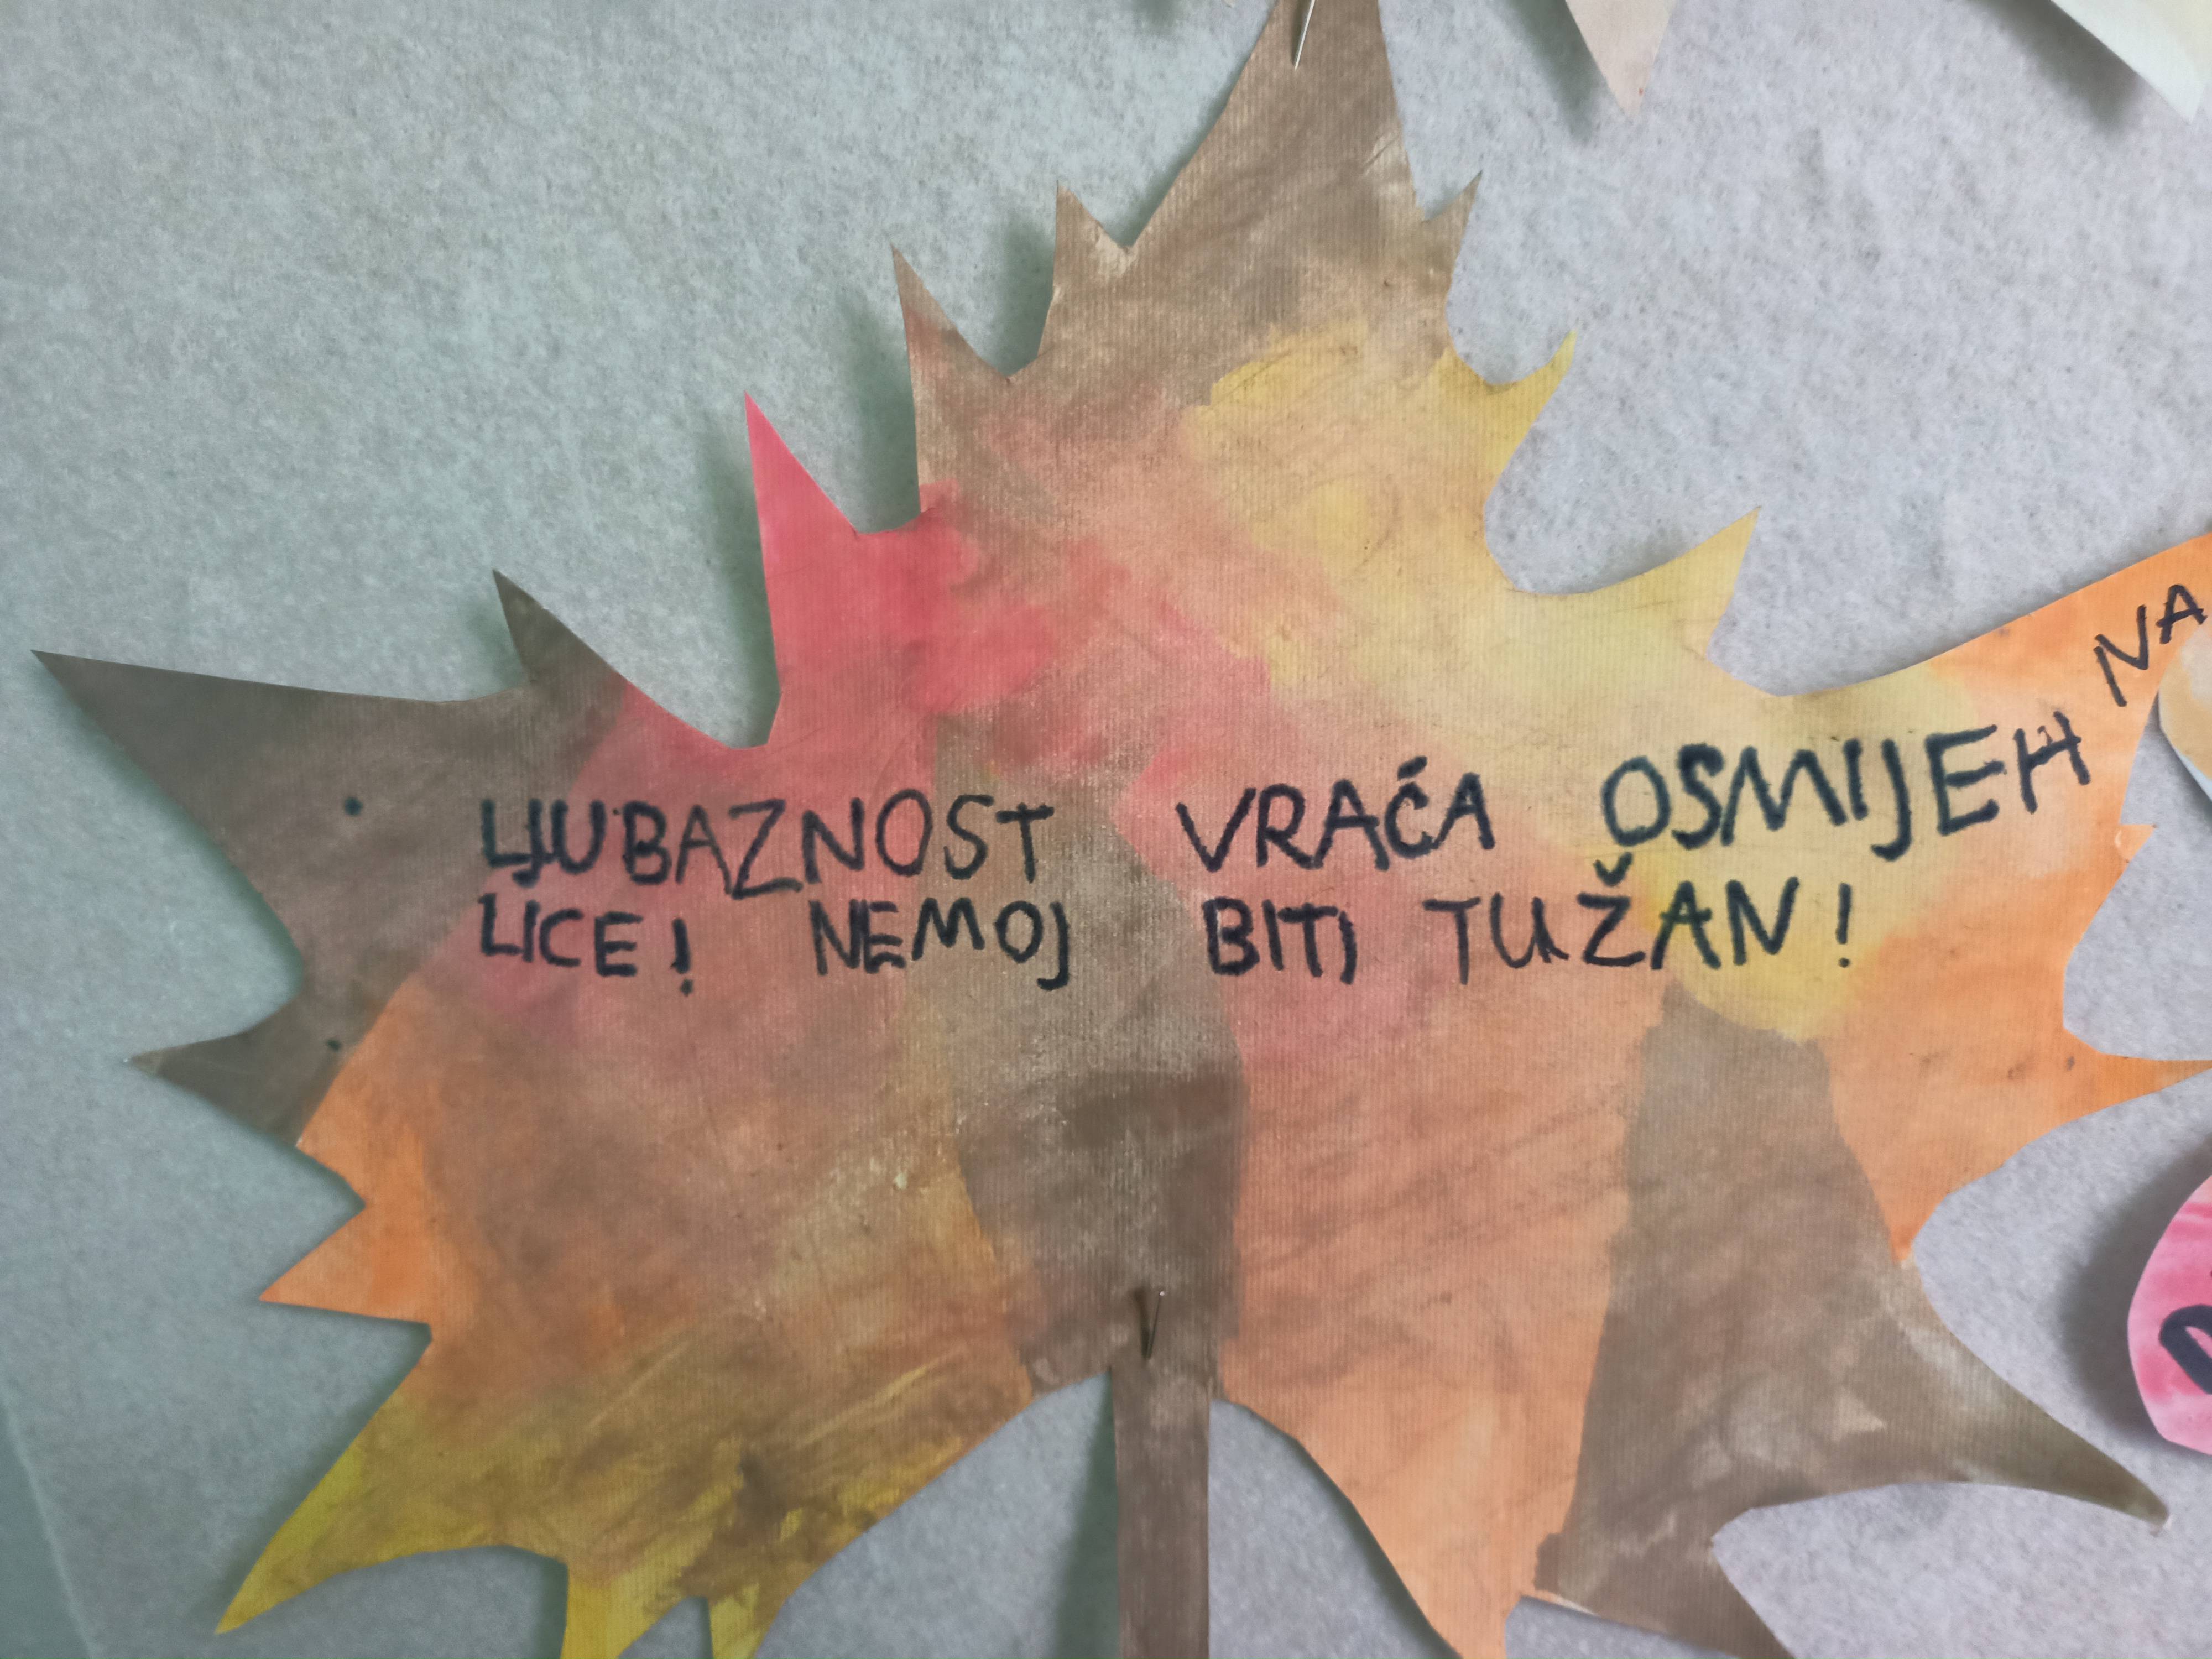 LJUBAZNOST VRAĆA OSMIJEH NA
LICE! NEMOJ BITI TUŽAN!